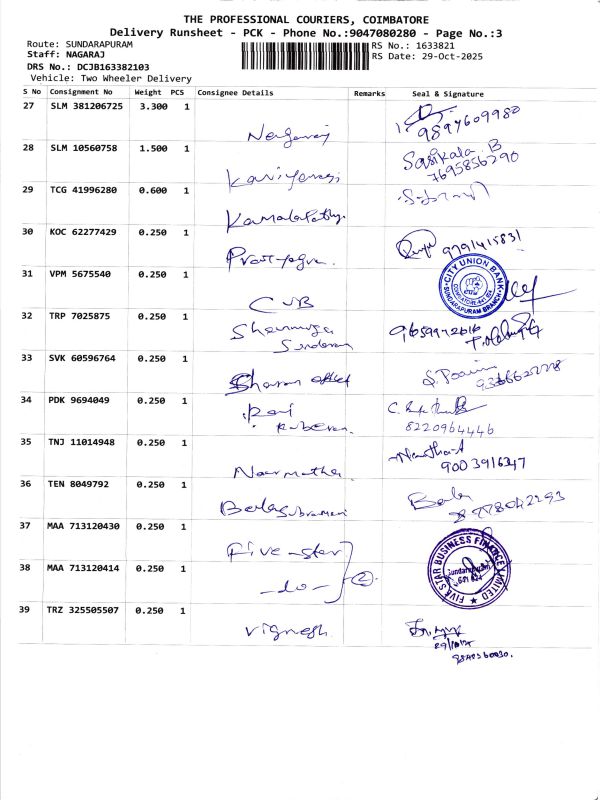 THE PROFESSIONAL COURIERS, COIMBATORE
Delivery Runsheet - PCK - Phone No.:9047080280 - Page No.:3
Route: SUNDARAPURAM
Staff: NAGARAJ
DRS No.: DCJB163382103
Vehicle: Two Wheeler Delivery
RS No.: 1633821
RS Date: 29-Oct-2025
S No Consignment No Weight PCS Consignee Details Remarks Seal & Signature
27 SLM 381206725 3.300 1
Nagaraj
9894609980
28 SLM 10560758 1.500 1
Sasikala. B
7695856290
29 TCG 41996280 0.600 1
Kamalapathy.
30 KOC 62277429 0.250 1
9791415831
31 VPM 5675540 0.250 1
CUB
CITY UNION BANK
SUNDARAPURAM BRANCH
32 TRP 7025875 0.250 1
Shanmuga
Sundaram
33 SVK 60596764 0.250 1
Sharan
34 PDK 9694049 0.250 1
Ravi
Kuberan
8220964446
35 TNJ 11014948 0.250 1
Narmatha
9003916347
36 TEN 8049792 0.250 1
Balasubramani
Bala
37 MAA 713120430 0.250 1
Five-star
FIVE STAR BUSINESS FINANCE LIMITED
Sundarapuram
38 MAA 713120414 0.250 1
-do-
2
39 TRZ 325505507 0.250 1
Vignesh.